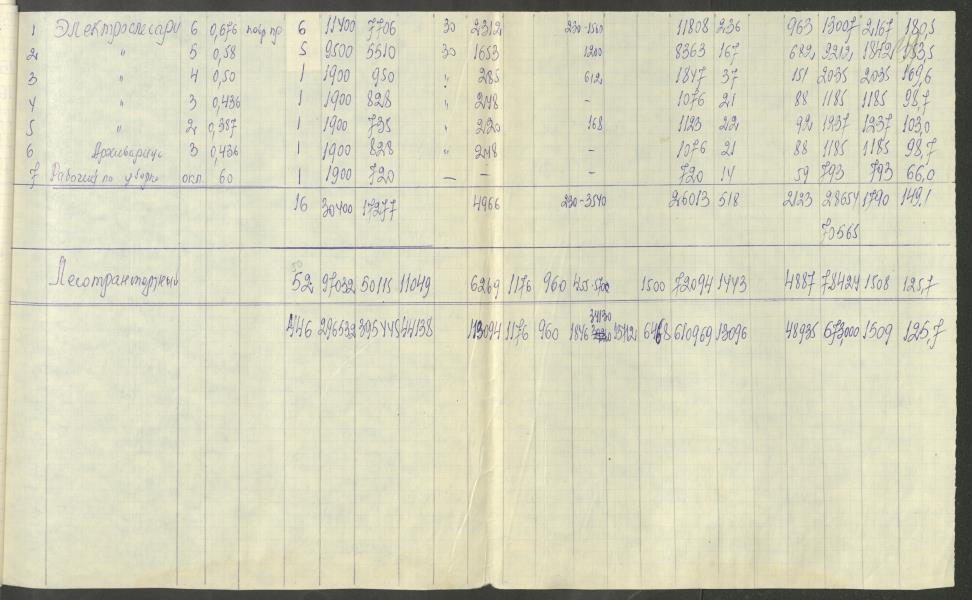 1 Электрослесари 6 0,676 повр пр 6 11400 7706 30 2312 230-1560 11808 236 963 13007 2167 180,5
2 " 5 0,58 5 9500 5510 30 1653 1200 8363 167 682 9212 1842 153,5
3 " 4 0,50 1 1900 950 " 285 612 1847 37 151 2035 2035 169,6
4 " 3 0,436 1 1900 828 " 248 - 1076 21 88 1185 1185 98,7
5 " 2 0,387 1 1900 735 " 220 168 1123 22 92 1237 1237 103,0
6 3 0,436 1 1900 828 " 248 - 1076 21 88 1185 1185 98,7
7 Рабочий по уборке окл 60 1 1900 720 - - - 720 14 59 793 793 66,0
16 30400 17277 4966 230-3540 26013 518 2123 28654 1790 149,1
73565
Лесотранспортный 52 97032 50115 11049 6269 1176 960 1500 72094 1443 4887 78424 1508 125,7
446 113094 1176 960 1846 610969 13096 48935 673,000 1509 125,7